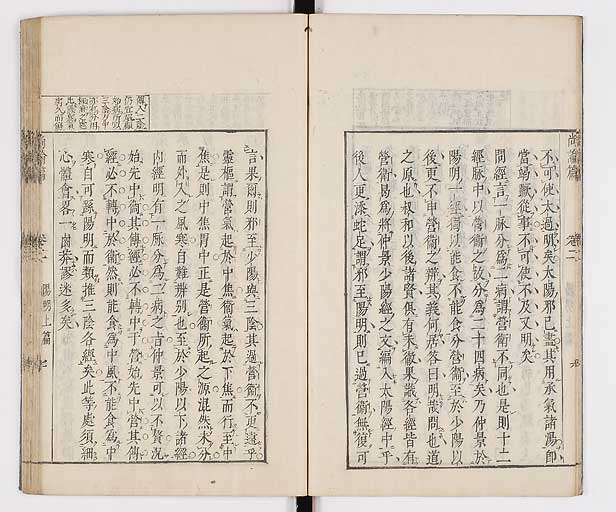 不可使太過明矣太陽邪已盡其用承氣諸湯即
當埸蹶從事不可使不及又明矣
問經言一脉分為二病謂營衛不同也是則十二
經脉中以營衛之故分為二十四病矣乃仲景於
陽明一經得以能食不能食分營衛至於少陽以
後更不申營衛之辨其義何居答曰明哉問也道
之原也叔和以後諸賢俱有未徹果識各經皆有
營衛曷為將仲景少陽經之文編入太陽經中乎
後人更添蛇足謂邪至陽明則已過營衛無復可
言果爾則邪至少陽與三陰其過營衛不更遠乎
靈樞謂營氣起於中焦衛氣起於下焦而行至中
焦是則中焦胃中正是營衛所起之源混然未分
而外入之風寒自難辨別也至於少陽以下諸經
內經明有一脉分為二病之旨仲景可以不贅況
始先中衛其傳經必不轉中于營始先中營其傳
經必不轉中於衛然則能食為中風不能食為中
寒自可孫陽明而類推三陰各經矣此等處須細
心體會畧一鹵莽謬迷多矣
尚論篇
卷二
陽明上篇
尚論篇
卷二